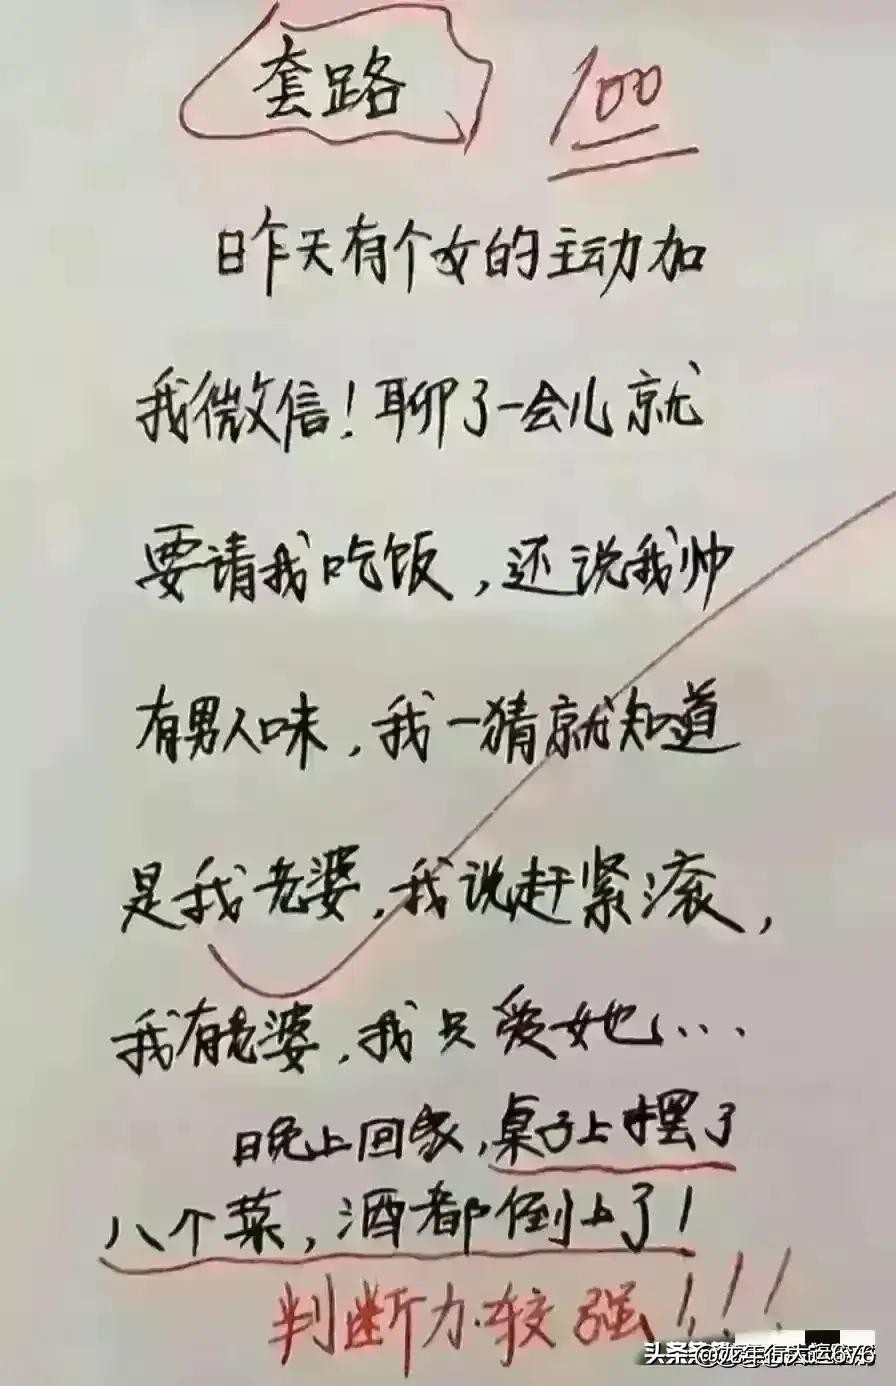 套路
100
昨天有个女的主动加
我微信！聊了一会儿就
要请我吃饭，还说我帅
有男人味，我一猜就知道
是我老婆，我说赶紧滚，
我有老婆，我只爱她...
晚上回家，桌子上摆了
八个菜，酒都倒上了！
判断力较强！！！
头条
@龙年行大运676